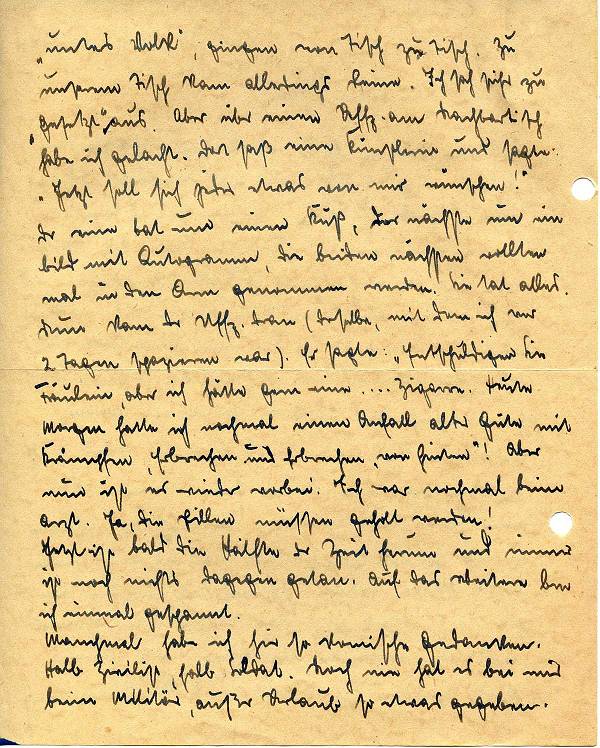 „unters Volk", gingen von Tisch zu Tisch. Zu
unserem Tisch kam allerdings keine. Ich sah sehr zu
„Gesetzt" aus. Aber über einen Uffz. am Nachbartisch
habe ich gelacht. Dort saß eine Künstlerin und sagte:
„Jetzt soll sich jeder etwas von mir wünschen!"
Der eine bat um einen Kuß, der nächste um ein
Bild mit Autogramm, die beiden nächsten wollten
mal in den Arm genommen werden. Sie tat alles.
Dann kam der Uffz. dran (derselbe, mit dem ich vor
2 Tagen spazieren war). Er sagte: „Entschuldigen Sie
Fräulein, aber ich hätte gern eine .... Zigarre. Heute
Morgen hatte ich nochmal einen Anfall alter Güte mit
Krämpfen, Erbrechen und Erbrechen „von hinten"! Aber
nun ist es wieder vorbei. Ich war nochmal beim
Arzt. Ja, die Pillen müssen geholt werden!
Jetzt ist bald die Hälfte der Zeit herum und immer
ist noch nichts dagegen getan. Auf das Weitere bin
ich einmal gespannt.
Manchmal habe ich hier so komische Gedanken.
Halb Zivilist, halb Soldat. Doch nie hat es bei mir
beim Militär, außer Urlaub so etwas gegeben.